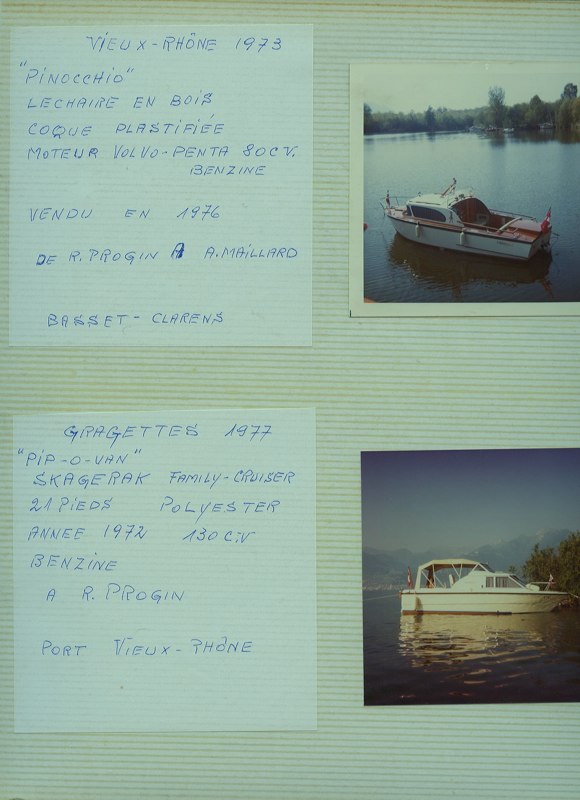 VIEUX-RHÔNE 1973
"PINOCCHIO"
LECHAIRE EN BOIS
COQUE PLASTIFIÉE
MOTEUR VOLVO-PENTA 80 C.V.
BENZINE
VENDU EN 1976
DE R. PROGIN A A. MAILLARD
BASSET - CLARENS
GRAGETTES 1977
"PIP-O-VAN"
SKAGERAK FAMILY-CRUISER
21 PIEDS POLYESTER
ANNEE 1972 130 C.V
BENZINE
A R. PROGIN
PORT VIEUX-RHÔNE